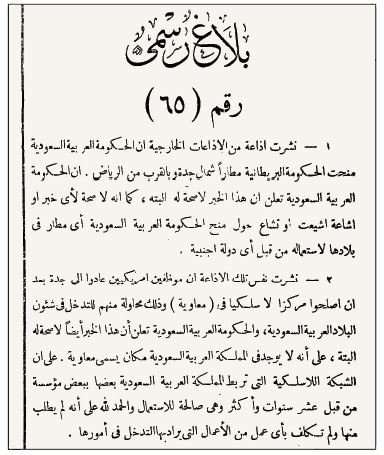 بلاغ رسمى
رقم ( ٦٥ )
١ — نشرت اذاعة من الاذاعات الخارجية ان الحكومة العربية السعودية
منحت الحكومة البريطانية مطاراً شمالي جدة وبالقرب من الرياض . ان الحكومة
العربية السعودية تعلن ان هذا الخبر لاصحة له البتة ، كما انه لا صحة لأى خبر او
اشاعة اشيعت او تشاع حول منح الحكومة العربية السعودية أى مطار فى
بلادها لاستعماله من قبل أى دولة اجنبية .
٢ — نشرت نفس تلك الاذاعة ان موظفين امريكيين عادوا الى جدة بعد
ان اصلحوا مركزا لا سلكيا فى ( معاوية ) وذلك محاولة منهم للتدخل فى شئون
البلاد العربية السعودية، والحكومة العربية السعودية تعلن أن هذا الخبر أيضاً لاصحة له
البتة ، على أنه لا يوجد فى المملكة العربية السعودية مكان يسمى معاوية . على ان
الشبكة اللاسلكية التى تربط المملكة العربية السعودية بعضها ببعض مؤسسة
من قبل عشر سنوات وأكثر وهى صالحة للاستعمال والحمد لله على أنه لم يطلب
منها ولم تكلف بأى عمل من الأعمال التى يراد بها التدخل فى أمورها .